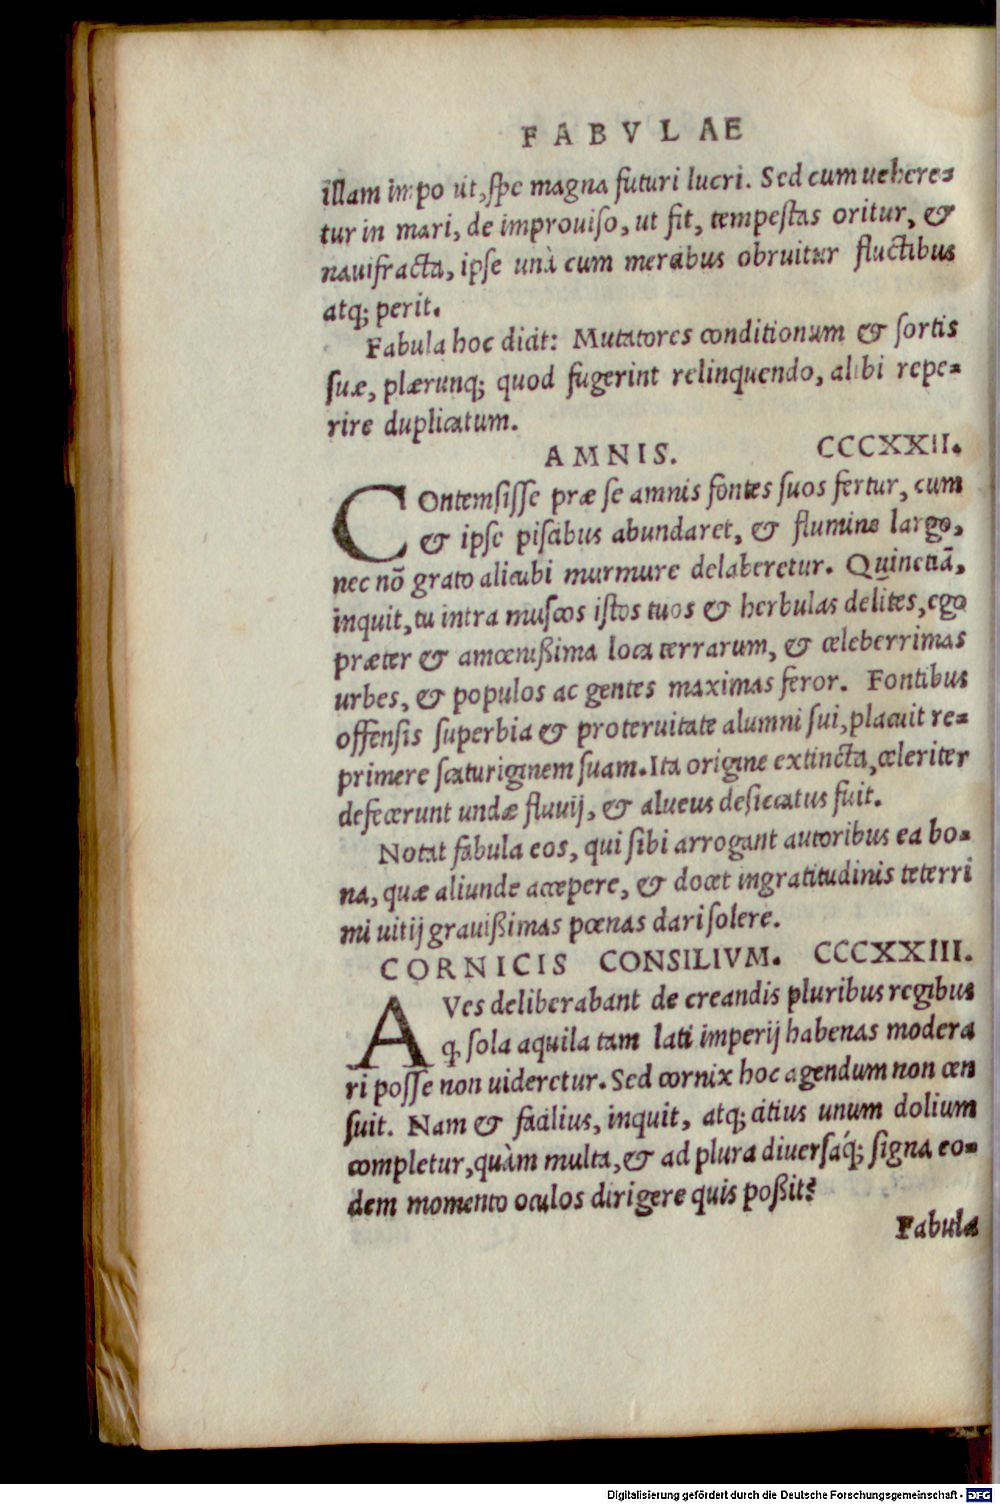 FABVLAE
illam impo uit, spe magna futuri lucri. Sed cum uehere=
tur in mari, de improuiso, ut fit, tempestas oritur, &
nauifracta, ipse unà cum mercibus obruitur fluctibus
atq; perit.
Fabula hoc dicit: Mutatores conditionum & sortis
suæ, plærunq; quod fugerint relinquendo, alibi repe=
rire duplicatum.
AMNIS. CCCXXII.
COntemsisse præ se amnis fontes suos fertur, cum
& ipse piscibus abundaret, & flumine largo,
nec nō grato alicubi murmure delaberetur. Quinetiā,
inquit, tu intra muscos istos tuos & herbulas delites, ego
præter & amœnißima loca terrarum, & celeberrimas
urbes, & populos ac gentes maximas feror. Fontibus
offensis superbia & proteruitate alumni sui, placuit re=
primere scaturiginem suam. Ita origine extincta, celeriter
defecerunt undæ fluuij, & alueus desiccatus fuit.
Notat fabula eos, qui sibi arrogant autoribus ea bo=
na, quæ aliunde accepere, & docet ingratitudinis teterri
mi uitij grauißimas pœnas dari solere.
CORNICIS CONSILIVM. CCCXXIII.
AVes deliberabant de creandis pluribus regibus
q, sola aquila tam lati imperij habenas modera
ri posse non uideretur. Sed cornix hoc agendum non cen
suit. Nam & facilius, inquit, atq; citius unum dolium
completur, quàm multa, & ad plura diuersáq; signa eo=
dem momento oculos dirigere quis poßit?
Fabula
Digitalisierung gefördert durch die Deutsche Forschungsgemeinschaft - DFG